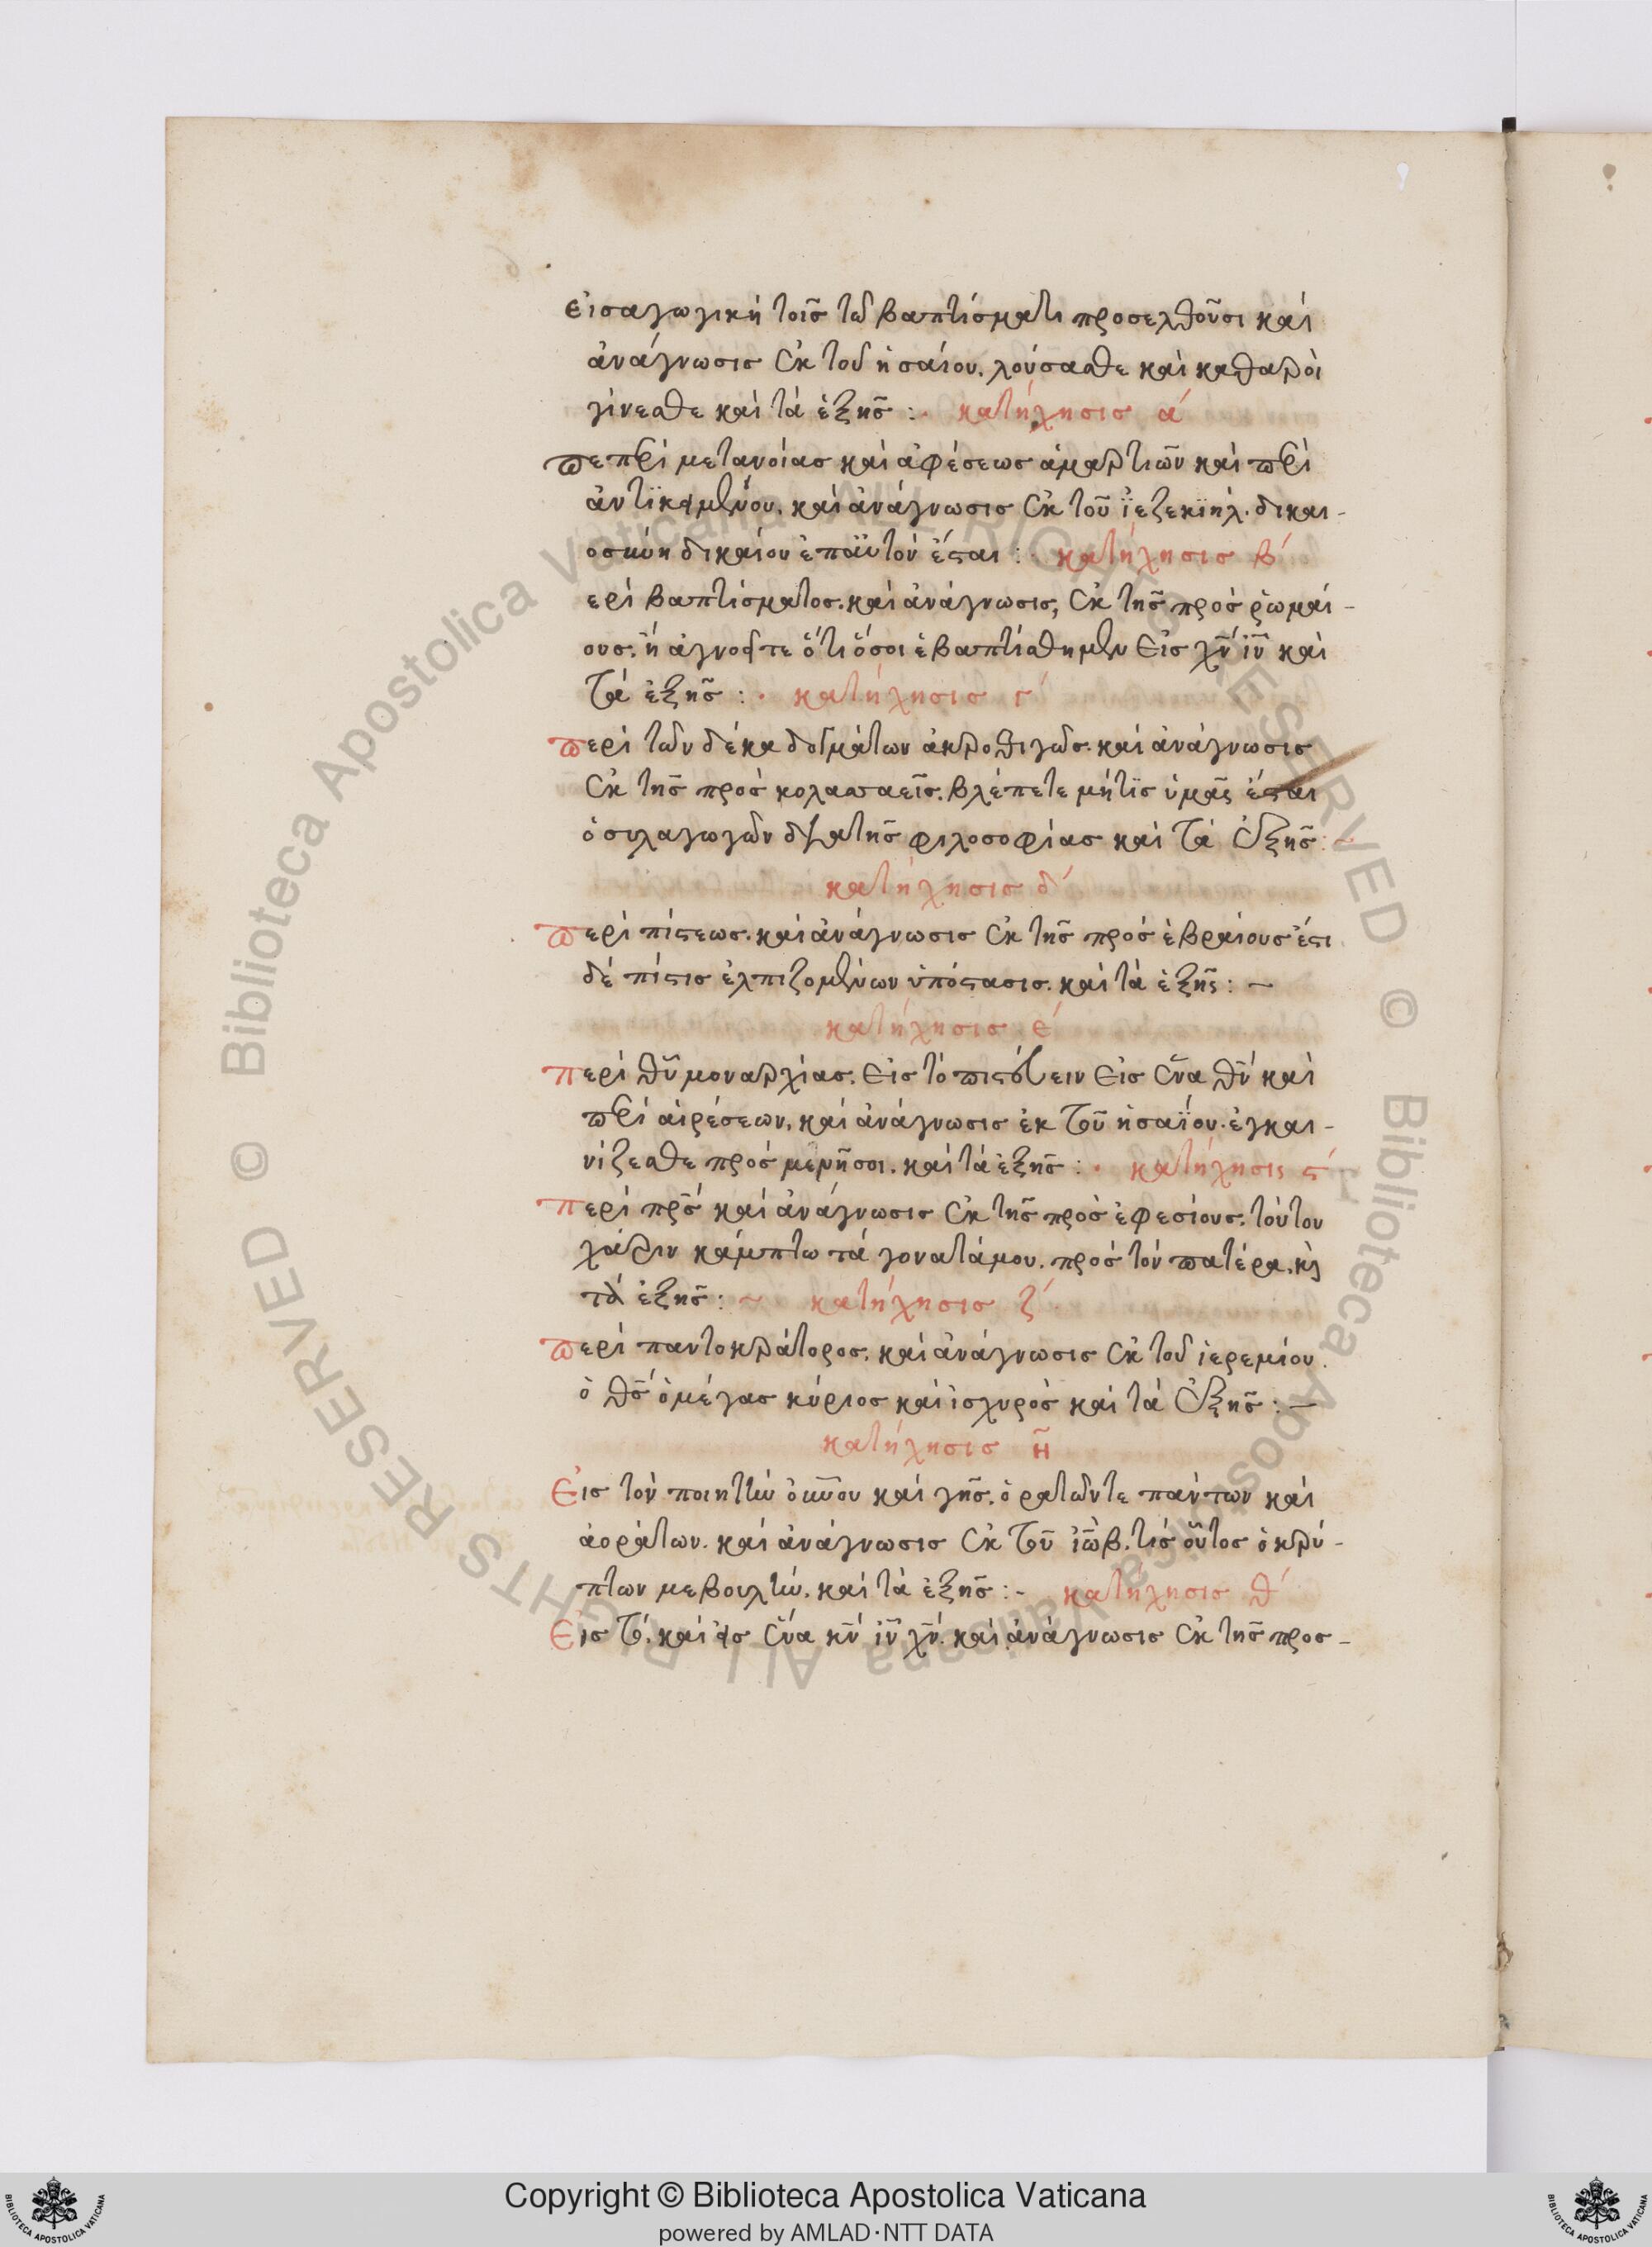 εἰσαγωγικὴ τοῖς τῶ βαπτίσματι προσελθοῦσι καὶ
ἀνάγνωσις ἐκ τοῦ ἠσαίου. λούσασθε καὶ καθαροὶ
γίνεσθε καὶ τὰ ἑξῆς :· κατήχησις α´
πεπρὶ μετανοίας καὶ ἀφέσεως ἁμαρτιῶν καὶ περὶ
ἀντϊκειμένου. καὶ ἀνάγνωσις ἐκ τοῦ ἰεζεκϊήλ. δικαι-
οσύνη δικαίου ἐπαὐτὸν ἔσται : κατήχησις β´
ερὶ βαπτίσματος. καὶ ἀνάγνωσις, ἐκ τῆς πρὸς ῥωμαί-
ους. ἢ ἀγνοεῖτε ὅτι ὅσοι ἐβαπτίσθημεν εἰς χν ιν καὶ
τὰ ἑξῆς :· κατήχησις γ´
περὶ τῶν δέκα δογμάτων ἀκροθιγῶς. καὶ ἀνάγνωσις
ἐκ τῆς πρὸς κολασσαεῖς. βλέπετε μήτϊς ὑμᾶς ἔσται
ὁ συλαγωγῶν διὰ τῆς φιλοσοφίας καὶ τὰ ἑξῆς :~
κατήχησις δ´
περὶ πίστεως. καὶ ἀνάγνωσις ἐκ τῆς πρὸς ἑβραίους ἔστι
δὲ πίστις ἐλπιζομένων ὑπόστασις. καὶ τὰ ἑξῆς : ~
κατήχησις ε´
περὶ θυ μοναρχίας. εἰς τὸ πιστεύειν εἰς ἕνα θν καὶ
περὶ αἱρέσεων, καὶ ἀνάγνωσις ἐκ τοῦ ἠσαΐου. ἐγκαι-
νίζεσθε πρός με νῆσοι. καὶ τὰ ἑξῆς :· κατήχησις ς´
περὶ πρς καὶ ἀνάγνωσις ἐκ τῆς πρὸς ἐφεσίους. τούτου
χάριν κάμπτω τὰ γόνατάμου. πρὸς τὸν πατέρα. κὶ
τὰ ἑξῆς : ~ κατήχησις ζ´
περὶ παντοκράτορος. καὶ ἀνάγνωσις ἐκ τοῦ ἱερεμίου.
ὁ θς ὁ μέγας κύριος καὶ ἰσχυρὸς καὶ τὰ ἑξῆς :—
κατήχησις η
Εἰς τὸν ποιητὴν ὀυνου καὶ γῆς. ὁρατῶντε πάντων καὶ
ἀοράτων. καὶ ἀνάγνωσις ἐκ τοῦ ἰὼβ. τίς οὗτος ὁ κρύ-
πτων με βουλὴν. καὶ τὰ ἑξῆς :- κατήχησις θ´
Εἰς τό. καὶ εἰς ἕνα κν ιν χν. καὶ ἀνάγνωσις ἐκ τῆς προσ-
Copyright © Biblioteca Apostolica Vaticana
powered by AMLAD·NTT DATA
© Biblioteca Apostolica Vaticana ALL RIGHTS RESERVED © Biblioteca Apostolica Vaticana ALL RIGHTS RESERVED
BIBLIOTECA APOSTOLICA VATICANA
BIBLIOTECA APOSTOLICA VATICANA